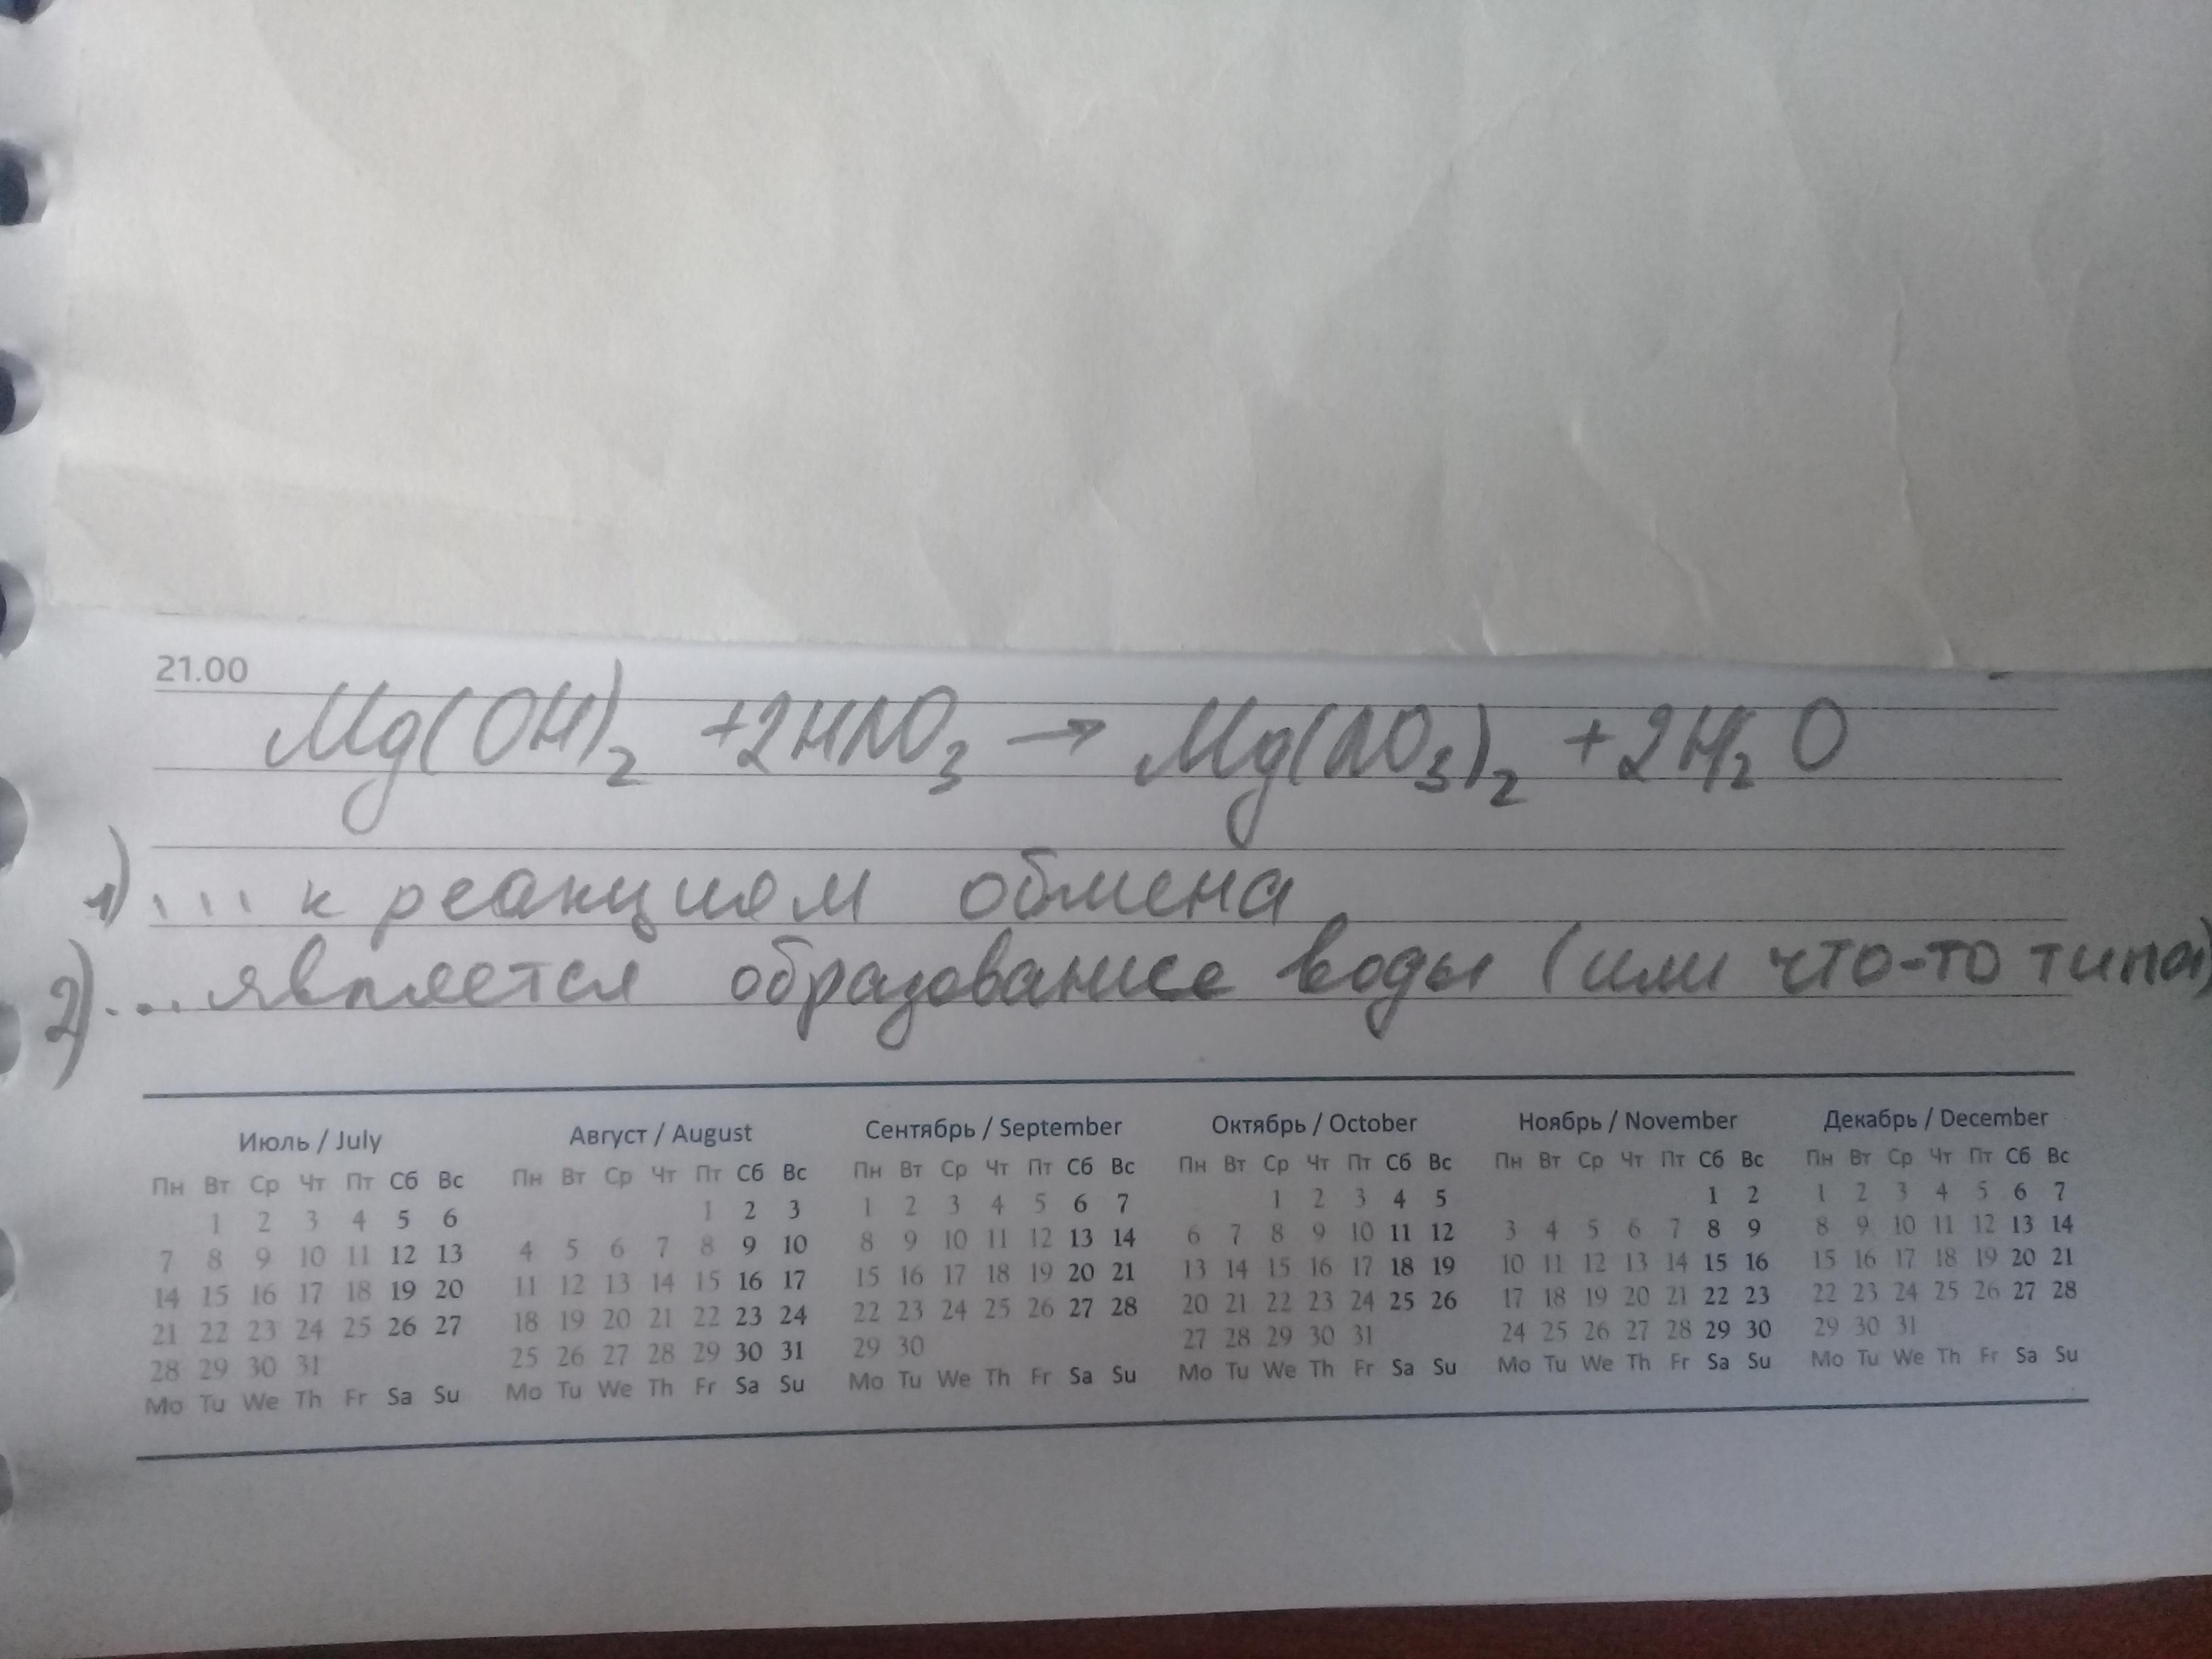 21.00
Mg(OH)₂ +2HNO₃ → Mg(NO₃)₂ +2H₂O
1) ... к реакциям обмена
2) ... является образование воды (или что-то типа)
Июль / July
Пн Вт Ср Чт Пт Сб Вс
1 2 3 4 5 6
7 8 9 10 11 12 13
14 15 16 17 18 19 20
21 22 23 24 25 26 27
28 29 30 31
Mo Tu We Th Fr Sa Su
Август / August
Пн Вт Ср Чт Пт Сб Вс
1 2 3
4 5 6 7 8 9 10
11 12 13 14 15 16 17
18 19 20 21 22 23 24
25 26 27 28 29 30 31
Mo Tu We Th Fr Sa Su
Сентябрь / September
Пн Вт Ср Чт Пт Сб Вс
1 2 3 4 5 6 7
8 9 10 11 12 13 14
15 16 17 18 19 20 21
22 23 24 25 26 27 28
29 30
Mo Tu We Th Fr Sa Su
Октябрь / October
Пн Вт Ср Чт Пт Сб Вс
1 2 3 4 5
6 7 8 9 10 11 12
13 14 15 16 17 18 19
20 21 22 23 24 25 26
27 28 29 30 31
Mo Tu We Th Fr Sa Su
Ноябрь / November
Пн Вт Ср Чт Пт Сб Вс
1 2
3 4 5 6 7 8 9
10 11 12 13 14 15 16
17 18 19 20 21 22 23
24 25 26 27 28 29 30
Mo Tu We Th Fr Sa Su
Декабрь / December
Пн Вт Ср Чт Пт Сб Вс
1 2 3 4 5 6 7
8 9 10 11 12 13 14
15 16 17 18 19 20 21
22 23 24 25 26 27 28
29 30 31
Mo Tu We Th Fr Sa Su